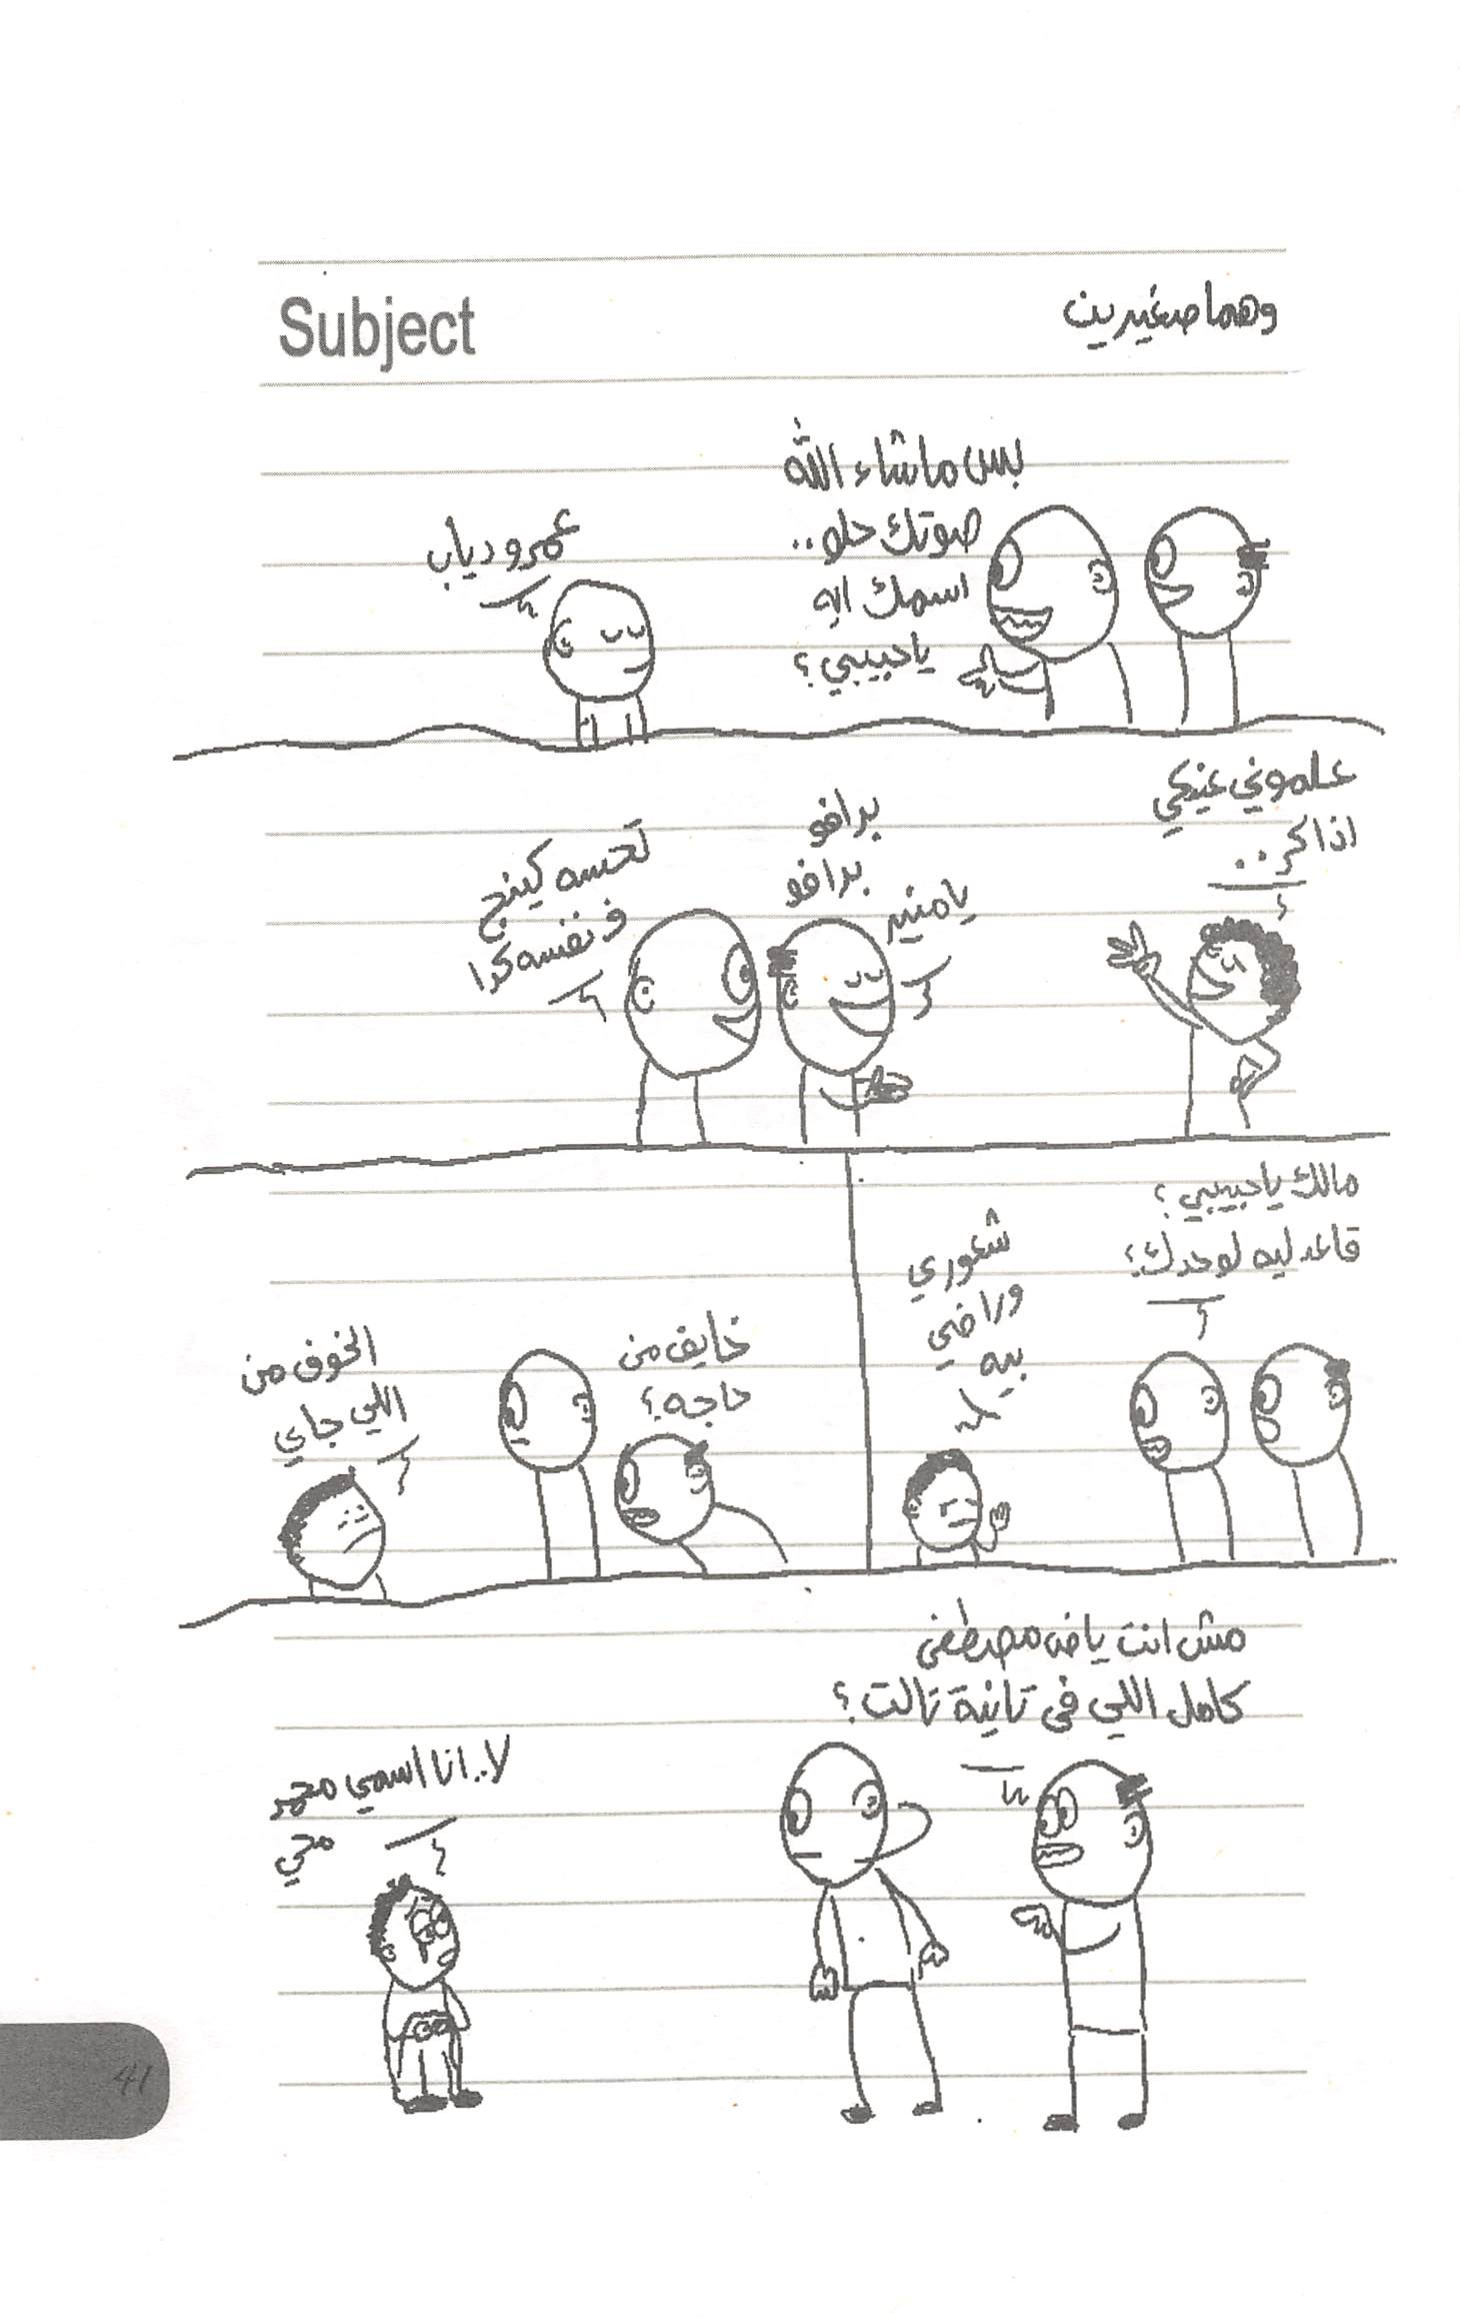 Subject
وهما صغيرين
بس ماشاء الله
صوتك حلو..
اسمك ايه
ياحبيبي؟
عمرو دياب
علموني عينيكي
اذاكر..
برافو
برافو
يا منير
تحسه كينج
ف نفسه كدا
مالك ياحبيبي؟
قاعد ليه لوحدك؟
شعوري
وراضي
بيه
خايف من
حاجه؟
الخوف من
اللي جاي
مش انت ياض مصطفى
كامل اللي في تانية تالت؟
لا.. انا اسمي محمد
محي
41